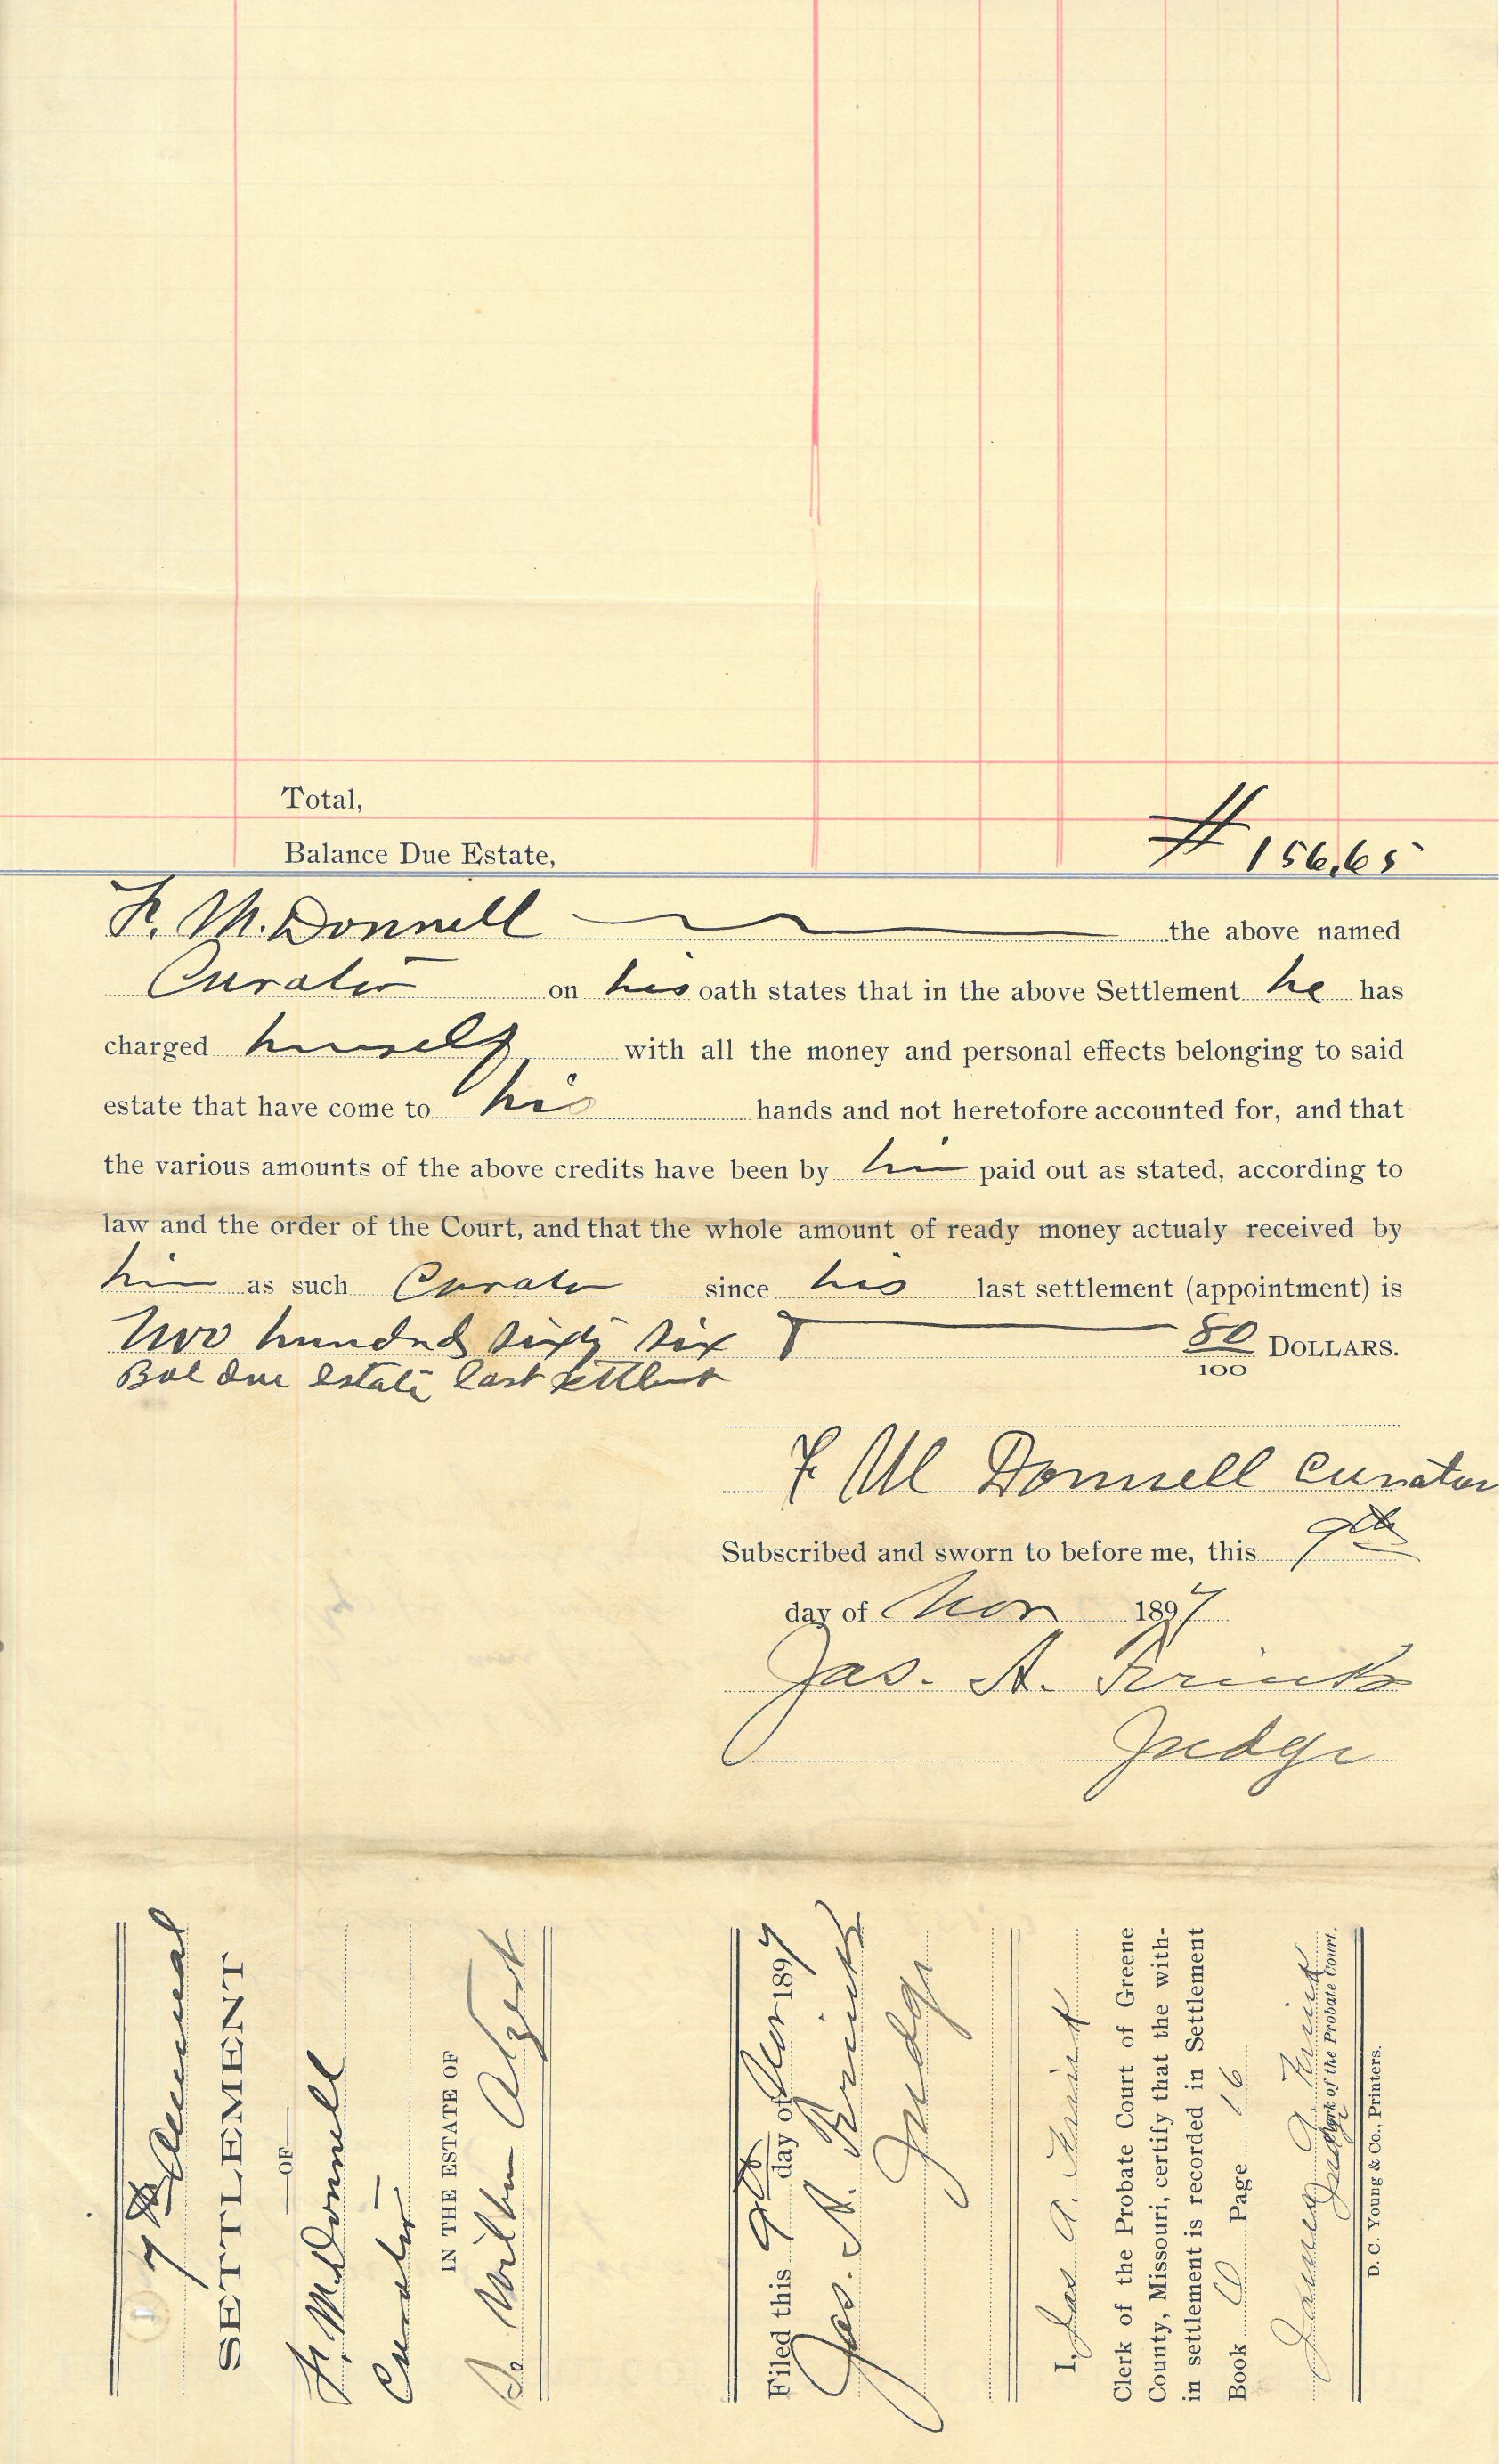 Total,
Balance Due Estate, $156.65
F. M. Donnell the above named
Curator on his oath states that in the above Settlement he has
charged himself with all the money and personal effects belonging to said
estate that have come to his hands and not heretofore accounted for, and that
the various amounts of the above credits have been by him paid out as stated, according to
law and the order of the Court, and that the whole amount of ready money actualy received by
him as such Curator since his last settlement (appointment) is
Two hundred sixty six 80/100 DOLLARS.
Bal due estate last settlmt
F M Donnell Curator
Subscribed and sworn to before me, this 9th
day of Nov 1897
Jas. A. Frink
Judge
7th Annual
SETTLEMENT
—OF—
F. M. Donnell
Curator
IN THE ESTATE OF
Wilbur
Filed this 9th day of Nov 1897
Jas. A. Frink
Judge
I, Jas A. Frink
Clerk of the Probate Court of Greene
County, Missouri, certify that the with-
in settlement is recorded in Settlement
Book Page 16
James A. Frink
Judge Clerk of the Probate Court.
D. C. Young & Co., Printers.